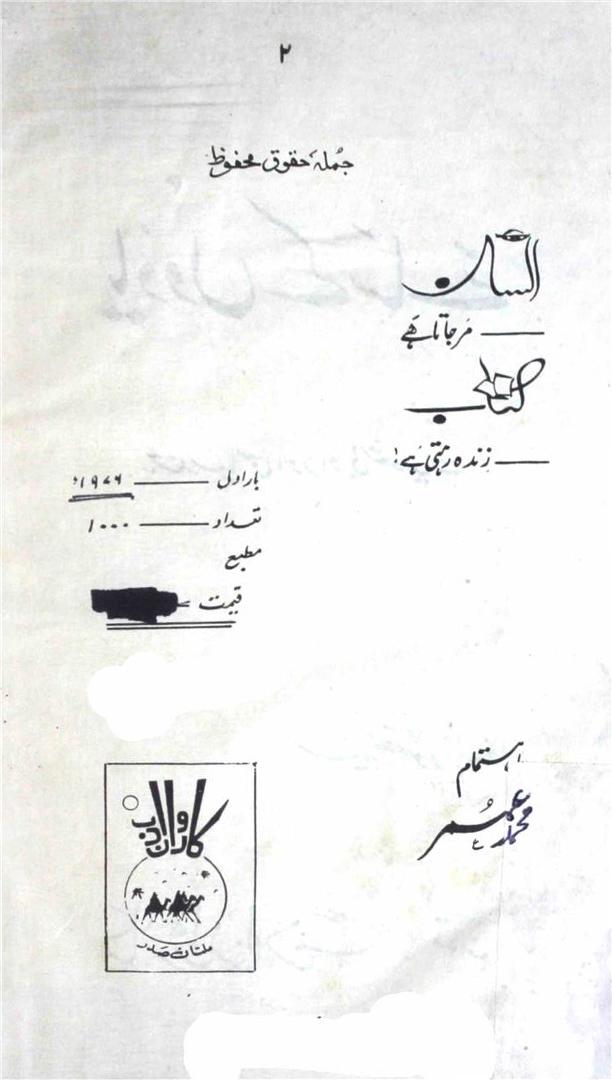 ۲
جُملہ حقوق محفوظ
انسان
مَرجاتا ہَے
کتاب
زندہ رہتی ہَے!
بار اول ۱۹۷۶ء
تعداد ۱۰۰۰
مطبع
قیمت
اہتمام
محمد عُمر
کاروان ادب
ملتان صَدر